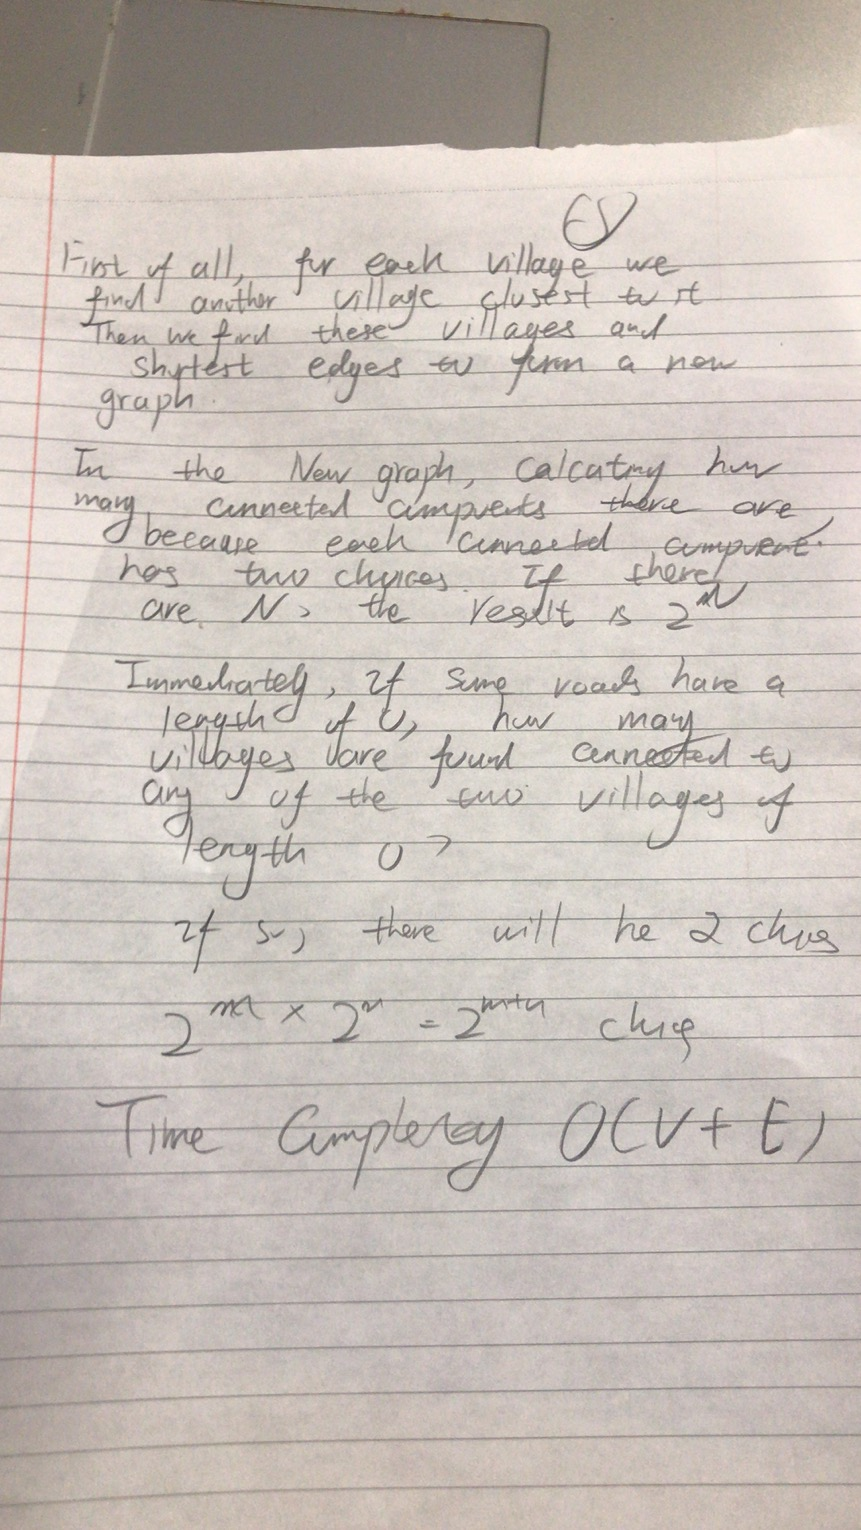 First of all, for each village we
find another village closest to it
Then we find these villages and
shortest edges to form a new
graph.
In the New graph, calcating how
many connected components there are
because each connected component
has two choices. If there
are N, the result is 2^N
Immediately, If some roads have a
length of 0, how many
villages are found connected to
any of the two villages of
length 0?
If so, there will be 2
2^m × 2^n = 2^m+n
Time Complexity O(V+E)